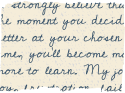 strongly believe tha
he moment you decid
etter at your chosen
me, you'll become m
more to learn. My jo